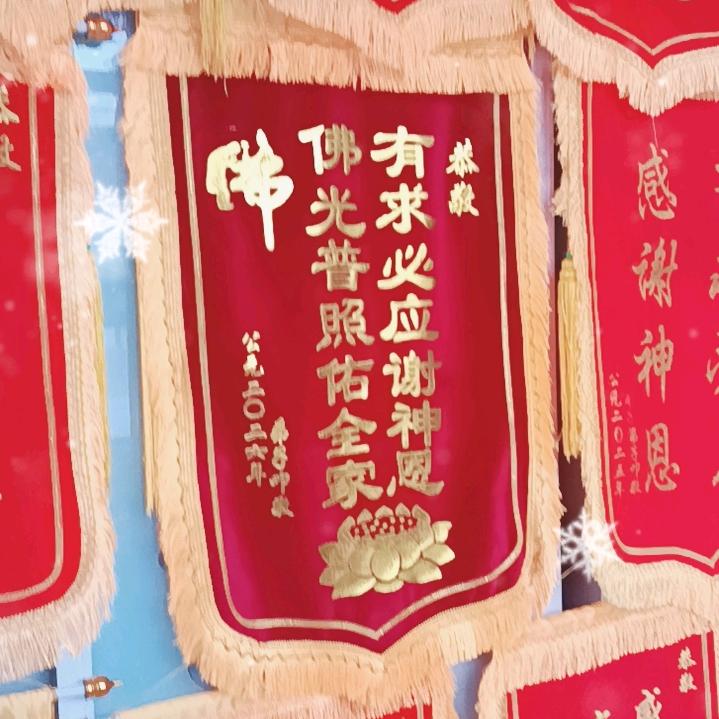 恭敬
有求必应谢神恩
佛光普照佑全家
佛
弟子叩敬
公元二〇二六年
感谢神恩
公元二〇二五年
恭敬
感
恭敬